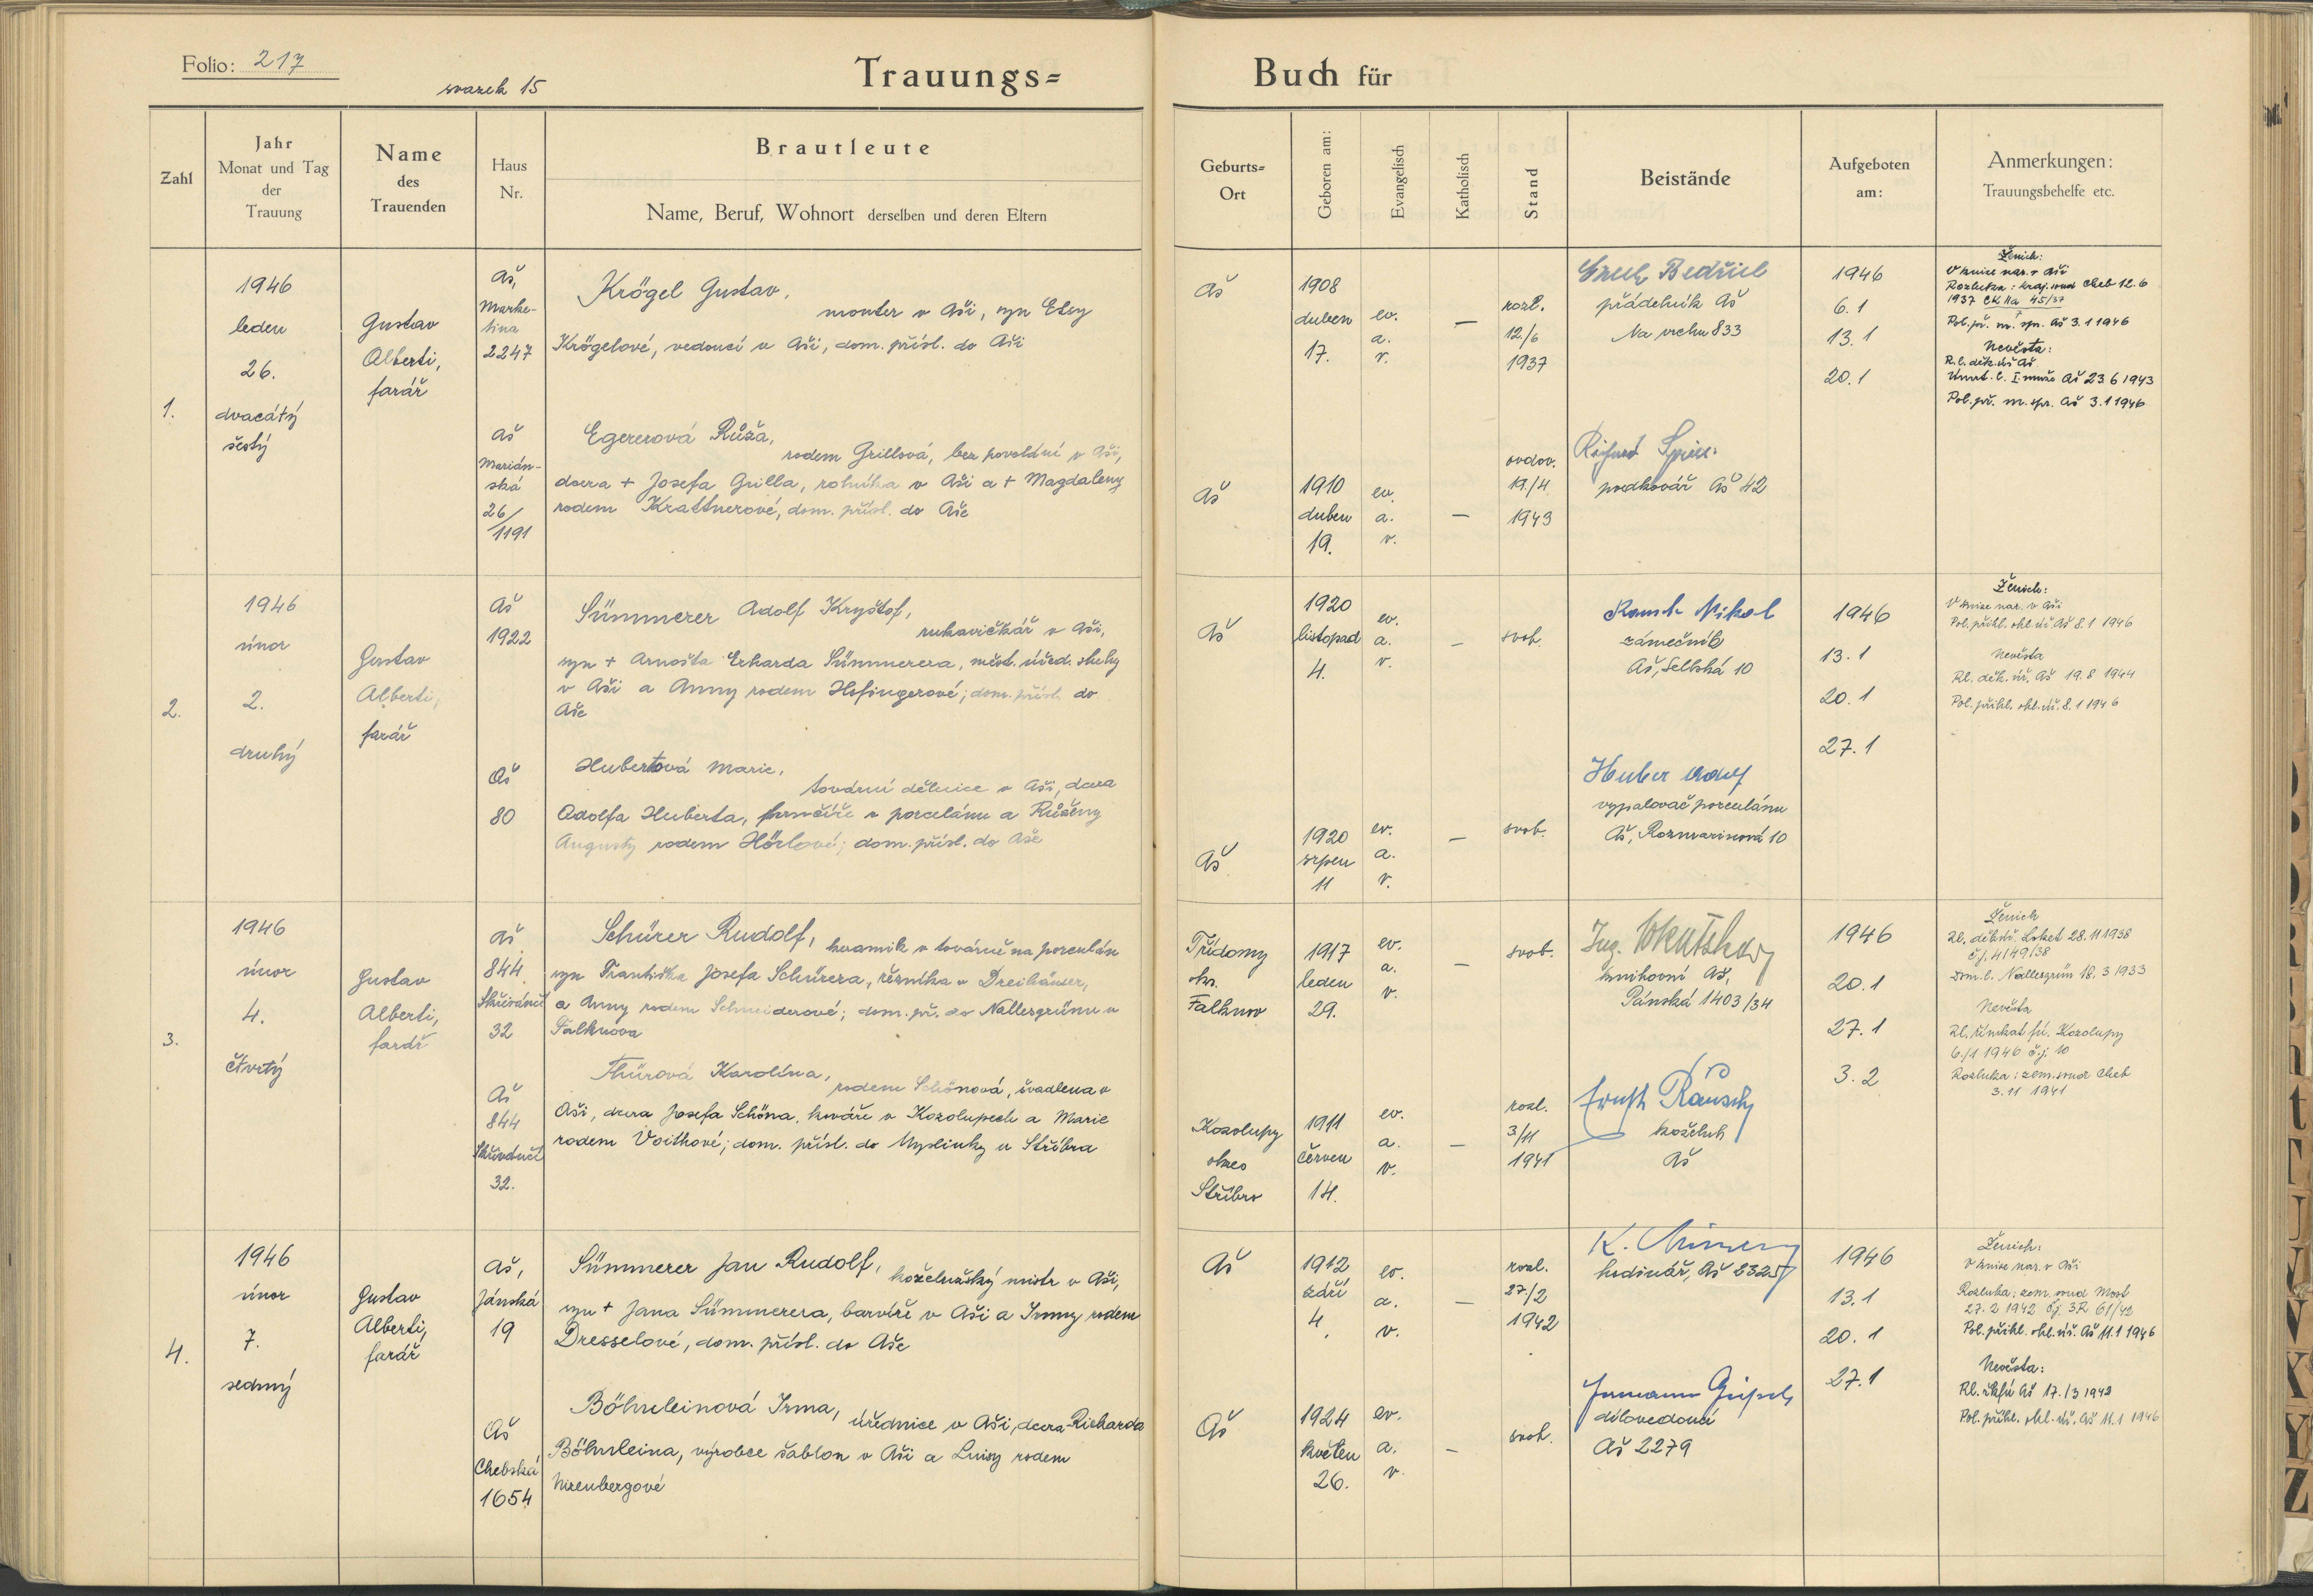 Folio: 217
svazek 15
Trauungs=
Buch für
Zahl
Jahr
Monat und Tag
der
Trauung
Name
des
Trauenden
Haus
Nr.
Brautleute
Name, Beruf, Wohnort derselben und deren Eltern
Geburts=
Ort
Geboren am:
Evangelisch
Katholisch
Stand
Beistände
Aufgeboten
am:
Anmerkungen:
Trauungsbehelfe etc.
1.
1946
leden
26.
dvacátý
šestý
Gustav
Alberti,
farář
Aš,
Marke-
tina
2247
Krögel Gustav,
monter v Aši, syn Elsy
Krögelové, vedoucí v Aši, dom. přísl. do Aši
Aš
1908
duben
17.
ev.
a.
v.
—
rozl.
12./6
1937
Bedřich
přádelník Aš
Na vrchu 833
1946
6.1
13.1
20.1
Ženich:
V knize nar. v Aši
Rozluka: kraj. soud Cheb 12.6
1937 CK IIa 45/37
Pol. př. m. spr. Aš 3.1 1946
Nevěsta:
R.l. děk. úř. Aš
Úmrt. l. I. muže Aš 23 6 1943
Pol. př. m. spr. Aš 3.1 1946
Aš
Marián-
ská
26/
1191
Egererová Růža,
rodem Grillová, bez povolání v Aši,
dcera + Josefa Grilla, rolníka v Aši a + Magdaleny
rodem Krattnerové, dom. přísl. do Aše
Aš
1910
duben
19.
ev.
a.
v.
—
ovdov.
19./4
1943
podkovář Aš 42
2.
1946
únor
2.
druhý
Gustav
Alberti,
farář
Aš
1922
Sümmerer Adolf Kryštof,
rukavičkář v Aši,
syn + Arnošta Erharda Sümmerera, měst. úřed. sluhy
v Aši a Anny rodem Hofingerové; dom. přísl. do
Aše
Aš
1920
listopad
4.
ev.
a.
v.
—
svob.
Nikol
zámečník
Aš, Selbská 10
1946
13.1
20.1
27.1
Ženich:
V knize nar. v Aši
Pol. přihl. okl. úř. Aš 8.1 1946
Nevěsta
Rl. děk. úř. Aš 19.8 1944
Pol. přihl. okl. úř. 8.1 1946
Aš
80
Hubertová Marie,
tovární dělnice v Aši, dcera
Adolfa Huberta, v porcelánu a Růženy
Augusty rodem Hörlové; dom. přísl. do Aše
Aš
1920
srpen
11
ev.
a.
v.
—
svob.
Huber Adolf
vypalovač porculánu
Aš, Rozmarinová 10
3.
1946
únor
4.
čtvrtý
Gustav
Alberti,
farář
Aš
844
Skřivánčí
32
Schürer Rudolf, keramik v továrně na porculán
syn Františka Josefa Schürera, řezníka v Dreihäuser,
a Anny rodem Schneiderové; dom. př. do Nallesgrünu u
Falknova
Třídomy
okr.
Falknov
1917
leden
29.
ev.
a.
v.
—
svob.
Ing.
knihovní Aš,
Pánská 1403/34
1946
20.1
27.1
3.2
Ženich
Rl. děk. úř. Loket 28.11 1938
č.j. 4149/38
Dom. l. Nallesgrün 18. 3 1933
Nevěsta
Rl. římkat fú. Kozolupy
6./1 1946 č.j. 10
Rozluka: zem. soud Cheb
3.11 1941
Aš
844
Skřivánčí
32.
Thürová Karolína,
rodem Schönová, švadlena v
Aši, dcera Josefa Schöna, kováře v Kozolupech a Marie
rodem Voithové; dom. přísl. do Myslinky u Stříbra
Kozolupy
okres
Stříbro
1911
červen
14.
ev.
a.
v.
—
rozl.
3/11
1941
koželuh
Aš
4.
1946
únor
7.
sedmý
Gustav
Alberti,
farář
Aš,
Jánská
19
Sümmerer Jan Rudolf, koželužský mistr v Aši,
syn + Jana Sümmerera, barvíře v Aši a Irmy rodem
Dresselové, dom. přísl. do Aše
Aš
1912
září
4.
ev.
a.
v.
—
rozl.
27/2
1942
K.
hodinář, Aš 2325
1946
13.1
20.1
27.1
Ženich:
V knize nar. v Aši
Rozluka: zem. soud Most
27.2 1942 čj. 3R 61/42
Pol. přihl. okl. úř. Aš 11.1 1946
Nevěsta:
Pol. přihl. okl. úř. Aš 11.1 1946
Aš
Chebská
1654
Böhmleinová Irma, úřednice v Aši, dcera Richarda
Böhmleina, výrobce šablon v Aši a Luisy rodem
Nirenbergové
Aš
1924
květen
26.
ev.
a.
v.
—
svob.
dílovedoucí
Aš 2279